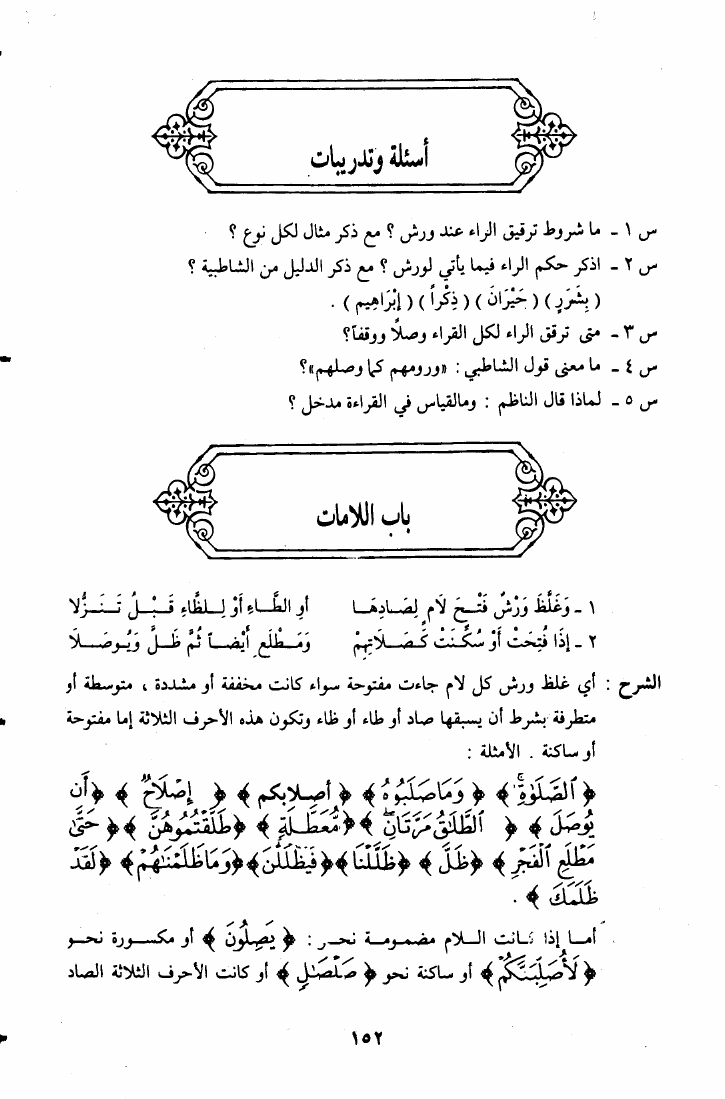 أسئلة وتدريبات
س ١ ـ ما شروط ترقيق الراء عند ورش ؟ مع ذكر مثال لكل نوع ؟
س ٢ ـ اذكر حكم الراء فيما يأتي لورش ؟ مع ذكر الدليل من الشاطبية ؟
( بِشَرَرٍ ) ( حَيْرَانَ ) ( ذِكْراً ) ( إِبْرَاهِيم ) .
س ٣ ـ متى ترقق الراء لكل القراء وصلاً ووقفاً؟
س ٤ ـ ما معنى قول الشاطبي : «ورومهم كما وصلهم»؟
س ٥ ـ لماذا قال الناظم : ومالقياس في القراءة مدخل ؟
باب اللامات
١ ـ وَغَلَّظَ وَرْشٌ فَتْحَ لَامٍ لِصَادِهَا أوِ الطَّاءِ أَوْ لِلظَّاءِ قَبْلُ تَنَزُّلا
٢ ـ إِذَا فُتِحَتْ أَوْ سُكِّنَتْ كَصَلَاتِهِمْ وَمَطْلَعِ أَيْضاً ثُمَّ ظَلَّ وَيُوصَلَا
الشرح : أي غلظ ورش كل لام جاءت مفتوحة سواء كانت مخففة أو مشددة ، متوسطة أو
متطرفة بشرط أن يسبقها صاد أو طاء أو ظاء وتكون هذه الأحرف الثلاثة إما مفتوحة
أو ساكنة . الأمثلة :
﴿ ٱلصَّلَوٰةَ ﴾ ﴿ وَمَا صَلَبُوهُ ﴾ ﴿ أصلابكم ﴾ ﴿ إِصْلَاحٌ ﴾ ﴿ أَن
يُوصَلَ ﴾ ﴿ ٱلطَّلَٰقُ مَرَّتَانِ ﴾ ﴿ مُّعَطَّلَةٍ ﴾ ﴿ طَلَّقْتُمُوهُنَّ ﴾ ﴿ حَتَّىٰ
مَطْلَعِ ٱلْفَجْرِ ﴾ ﴿ ظَلَّ ﴾ ﴿ ظَلَّلْنَا ﴾ ﴿ فَيَظْلَلْنَ ﴾ ﴿ وَمَا ظَلَمْنَٰهُمْ ﴾ ﴿ لَقَدْ
ظَلَمَكَ ﴾ .
أما إذا كانت اللام مضمومة نحو : ﴿ يَصِلُونَ ﴾ أو مكسورة نحو
﴿ لَأُصَلِّبَنَّكُمْ ﴾ أو ساكنة نحو ﴿ صَلْصَٰلٍ ﴾ أو كانت الأحرف الثلاثة الصاد
١٥٢